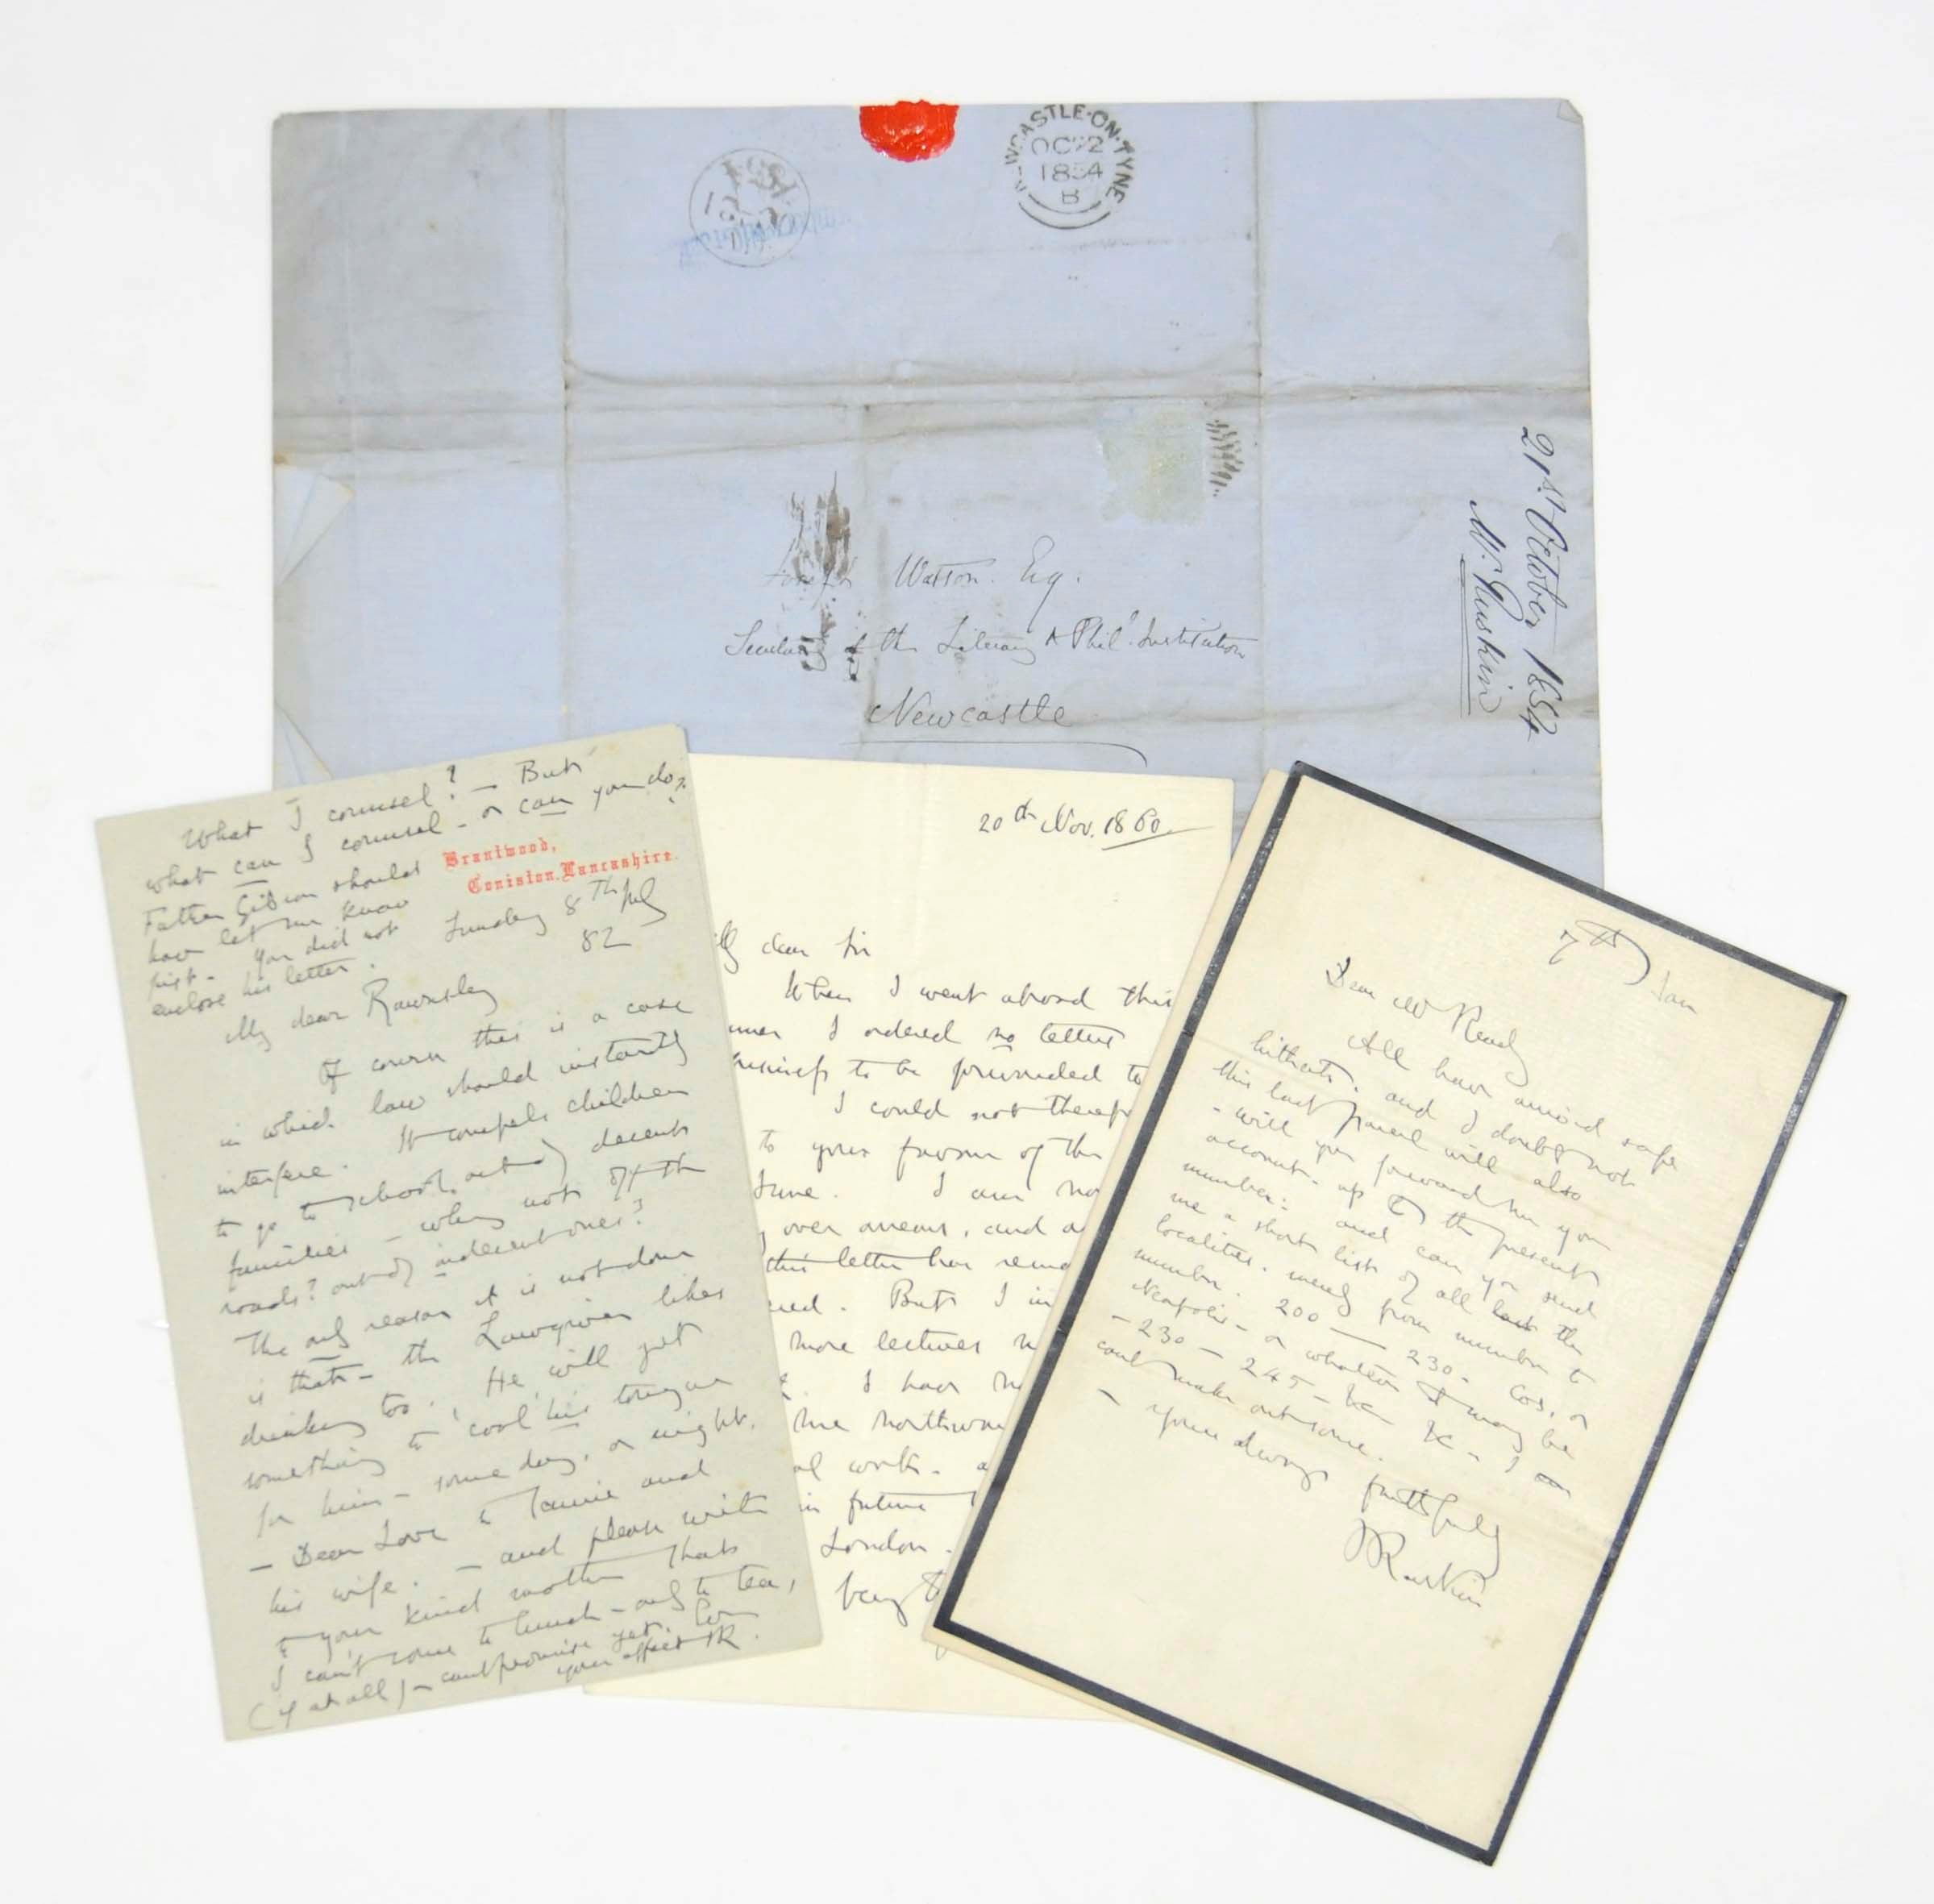 NEWCASTLE-ON-TYNE
OC 22
1854
B
21st October 1854
Mr Ruskin
Joseph Watson. Esq.
Secretary of the Literary & Phil. Institution
Newcastle
What I counsel? – But
what can I counsel – or can you do?
Father Gibson should
have let me know
first – You did not
enclose his letter.
Brantwood,
Coniston. Lancashire.
Sunday 8th July
82
My dear Rawnsley
Of course this is a case
in which law should instantly
interfere. It compels children
to go to school, out of decent
families – why not off the
roads? out of indecent ones?
The only reason it is not done
is that – the Lawgiver likes
drinking too. He will get
something to 'cool his tongue
for him – some day, or night.
– Dear Love to and
his wife. – and please write
to your kind mother that
I can't come to lunch – only to tea,
(if at all) – can't promise yet.
your affect JR.
20th Nov. 1860
My dear Sir
When I went abroad this
I ordered no letters
to be forwarded to
I could not
to your favour of the
June. I am
over arrears, and
this letter has
But I
more lectures
I have
me
work –
in future
London.
7th Jan
Dear Mr Ready
All have arrived safe
hitherto. and I doubt not
this last parcel will also
– will you forward me your
account – up to the present
number: and can you send
me a short list of all the
localities. merely from number to
number. 200 — 230. Cos, or
Neapolis – or whatever it may be
– 230 – 245 –
cant make out some.
– yours always faithfully
JRuskin